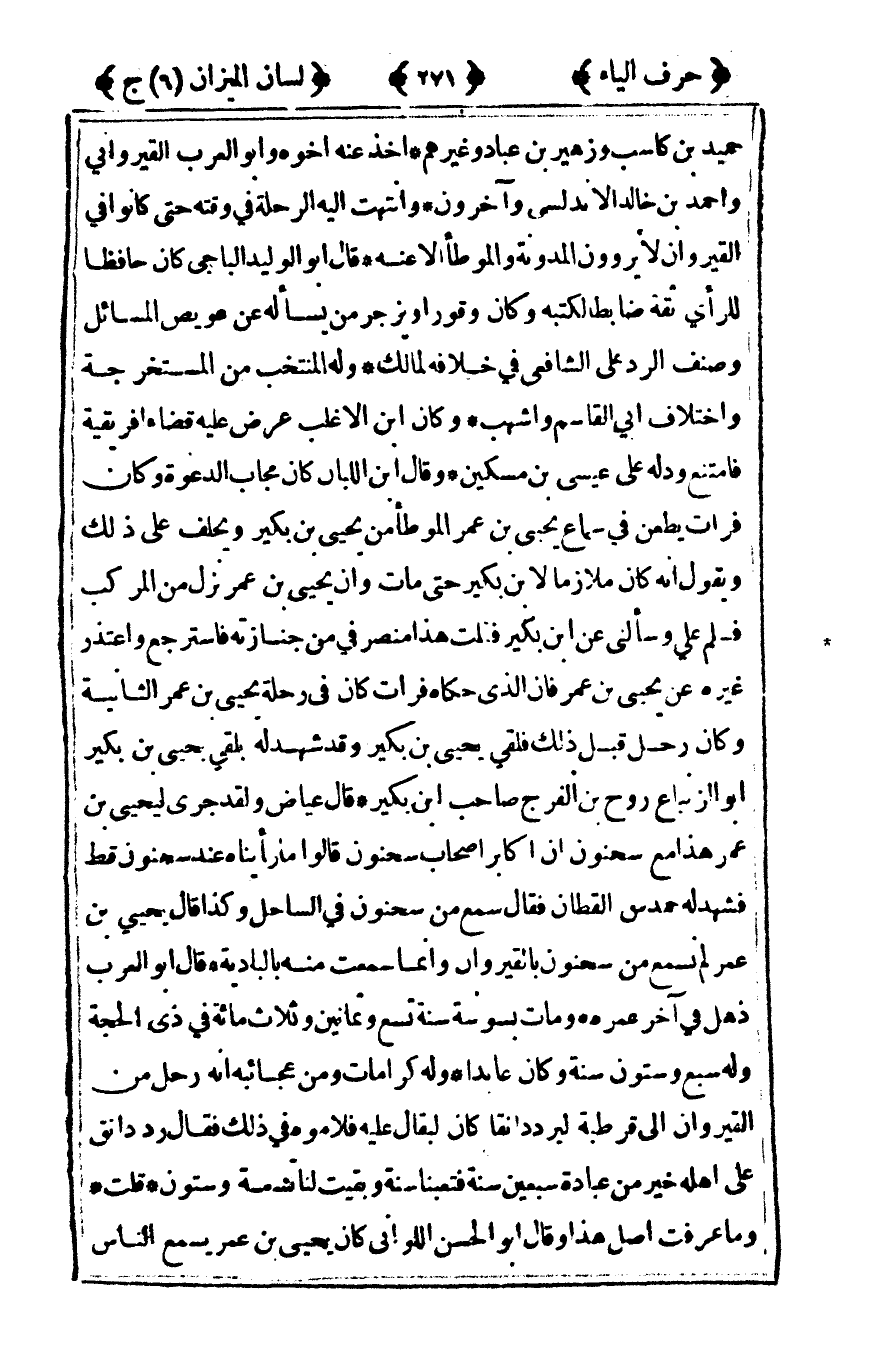 ﴿ حرف الياء ﴾ ﴿ ٢٧١ ﴾ ﴿ لسان الميزان (٦) ج ﴾
حميد بن كاسب وزهير بن عباد وغيرهم * اخذ عنه اخوه وابو العرب القيرواني
واحمد بن خالد الاندلسي وآخرون * وانتهت اليه الرحلة في وقته حتى كانوا في
القيروان لا يروون المدونة والموطأ الا عنه * قال ابو الوليد الباجي كان حافظا
للرأي ثقة ضابطا لكتبه وكان وقورا ويزجر من يسأله عن عويص المسائل
وصنف الرد على الشافعي في خلافه لمالك * وله المنتخب من المستخرجة
واختلاف ابي القاسم واشهب * وكان ابن الاغلب عرض عليه قضاء افريقية
فامتنع ودله على عيسى بن مسكين * وقال ابن اللبان كان مجاب الدعوة وكان
فرات يطعن في سماع يحيى بن عمر الموطأ من يحيى بن بكير ويحلف على ذلك
ويقول انه كان ملازما لابن بكير حتى مات وان يحيى بن عمر نزل من المركب
فسلم علي وسألنى عن ابن بكير فقلت هذا منصرفي من جنازته فاسترجع واعتذر
غيره عن يحيى بن عمر فان الذى حكاه فرات كان فى رحلة يحيى بن عمر الثانية
وكان رحل قبل ذلك فلقي يحيى بن بكير وقد شهد له بلقي يحيى بن بكير
ابو الزنباع روح بن الفرج صاحب ابن بكير * قال عياض ولقد جرى ليحيى بن
عمر هذا مع سحنون ان اكابر اصحاب سحنون قالوا ما رأيناه عند سحنون قط
فشهد له حمديس القطان فقال سمع من سحنون في الساحل وكذا قال يحيى بن
عمر لم نسمع من سحنون بالقيروان وانما سمعت منه بالبادية * قال ابو العرب
ذهل في آخر عمره * ومات بسوسة سنة تسع وثمانين وثلاث مائة في ذى الحجة
وله سبع وستون سنة وكان عابدا * وله كرامات ومن عجائبه انه رحل من
القيروان الى قرطبة ليرد دانقا كان لبقال عليه فلاموه في ذلك فقال رد دانق
على اهله خير من عبادة سبعين سنة فتعبنا سنة وبقيت لنا تسعة وستون * قلت *
وما عرفت اصل هذا وقال ابو الحسن اللواتى كان يحيى بن عمر يسمع الناس
*